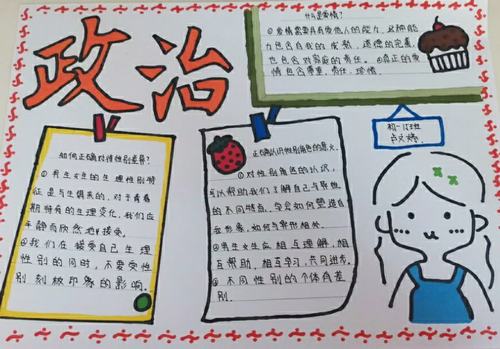 政治
什么是爱情?
①爱情需要具有爱他人的能力,这种能
力包含自身的成熟,道德的完善,
也包含对家庭的责任。②真正的爱
情包含尊重,责任,珍惜。
如何正确对待性别差异?
①男生女生的生理性别特
征是与生俱来的,对于青春
期特有的生理变化,我们应
平静而欣然地接受。
②我们在接受自己生理
性别的同时,不要受性
别刻板印象的影响。
正确认识性别角色的意义。
①对性别角色的认识,
可以帮助我们了解自己与异性
的不同特点,学会如何塑造自
我形象,如何与异性相处。
②男生女生应相互理解,相
互帮助,相互学习,共同进步。
③不同性别的个体有差
别。